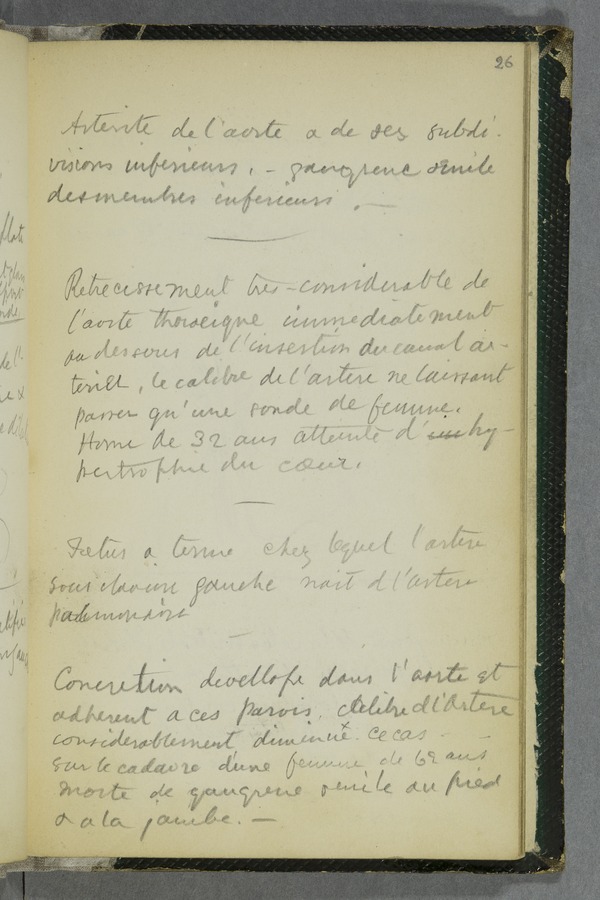 26
Arterite de l'aorte a de ses subdi-
visions inferieurs. - gangrene senile
des membres inferieurs. -
Retrecissement tres-considerable de
l'aorte thoraeique immediatement
au dessous de l'insertion du canal ar-
teriel, le calibre de l'artere ne laissant
passer qu'une sonde de femme.
Home de 32 ans atteinte d' hy-
pertrophie du cœur.
Fœtus a terme chez lequel l'artere
sous claviere gauche nait d l'artere
Concretion devellope dans l'aorte et
adherent a ces parois. d l'Artere
considerablement diminué. ce cas -
sur le cadavre d'une femme de 69 ans
morte de gangrene senile au pied
& a la jambe. -